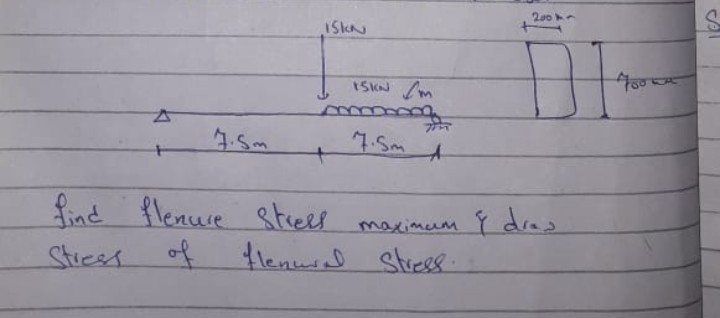 200mm
15kN
15kN/m
700mm
7.5m 7.5m
find flenure stress maximum & draw
stress of flenural stress.
S